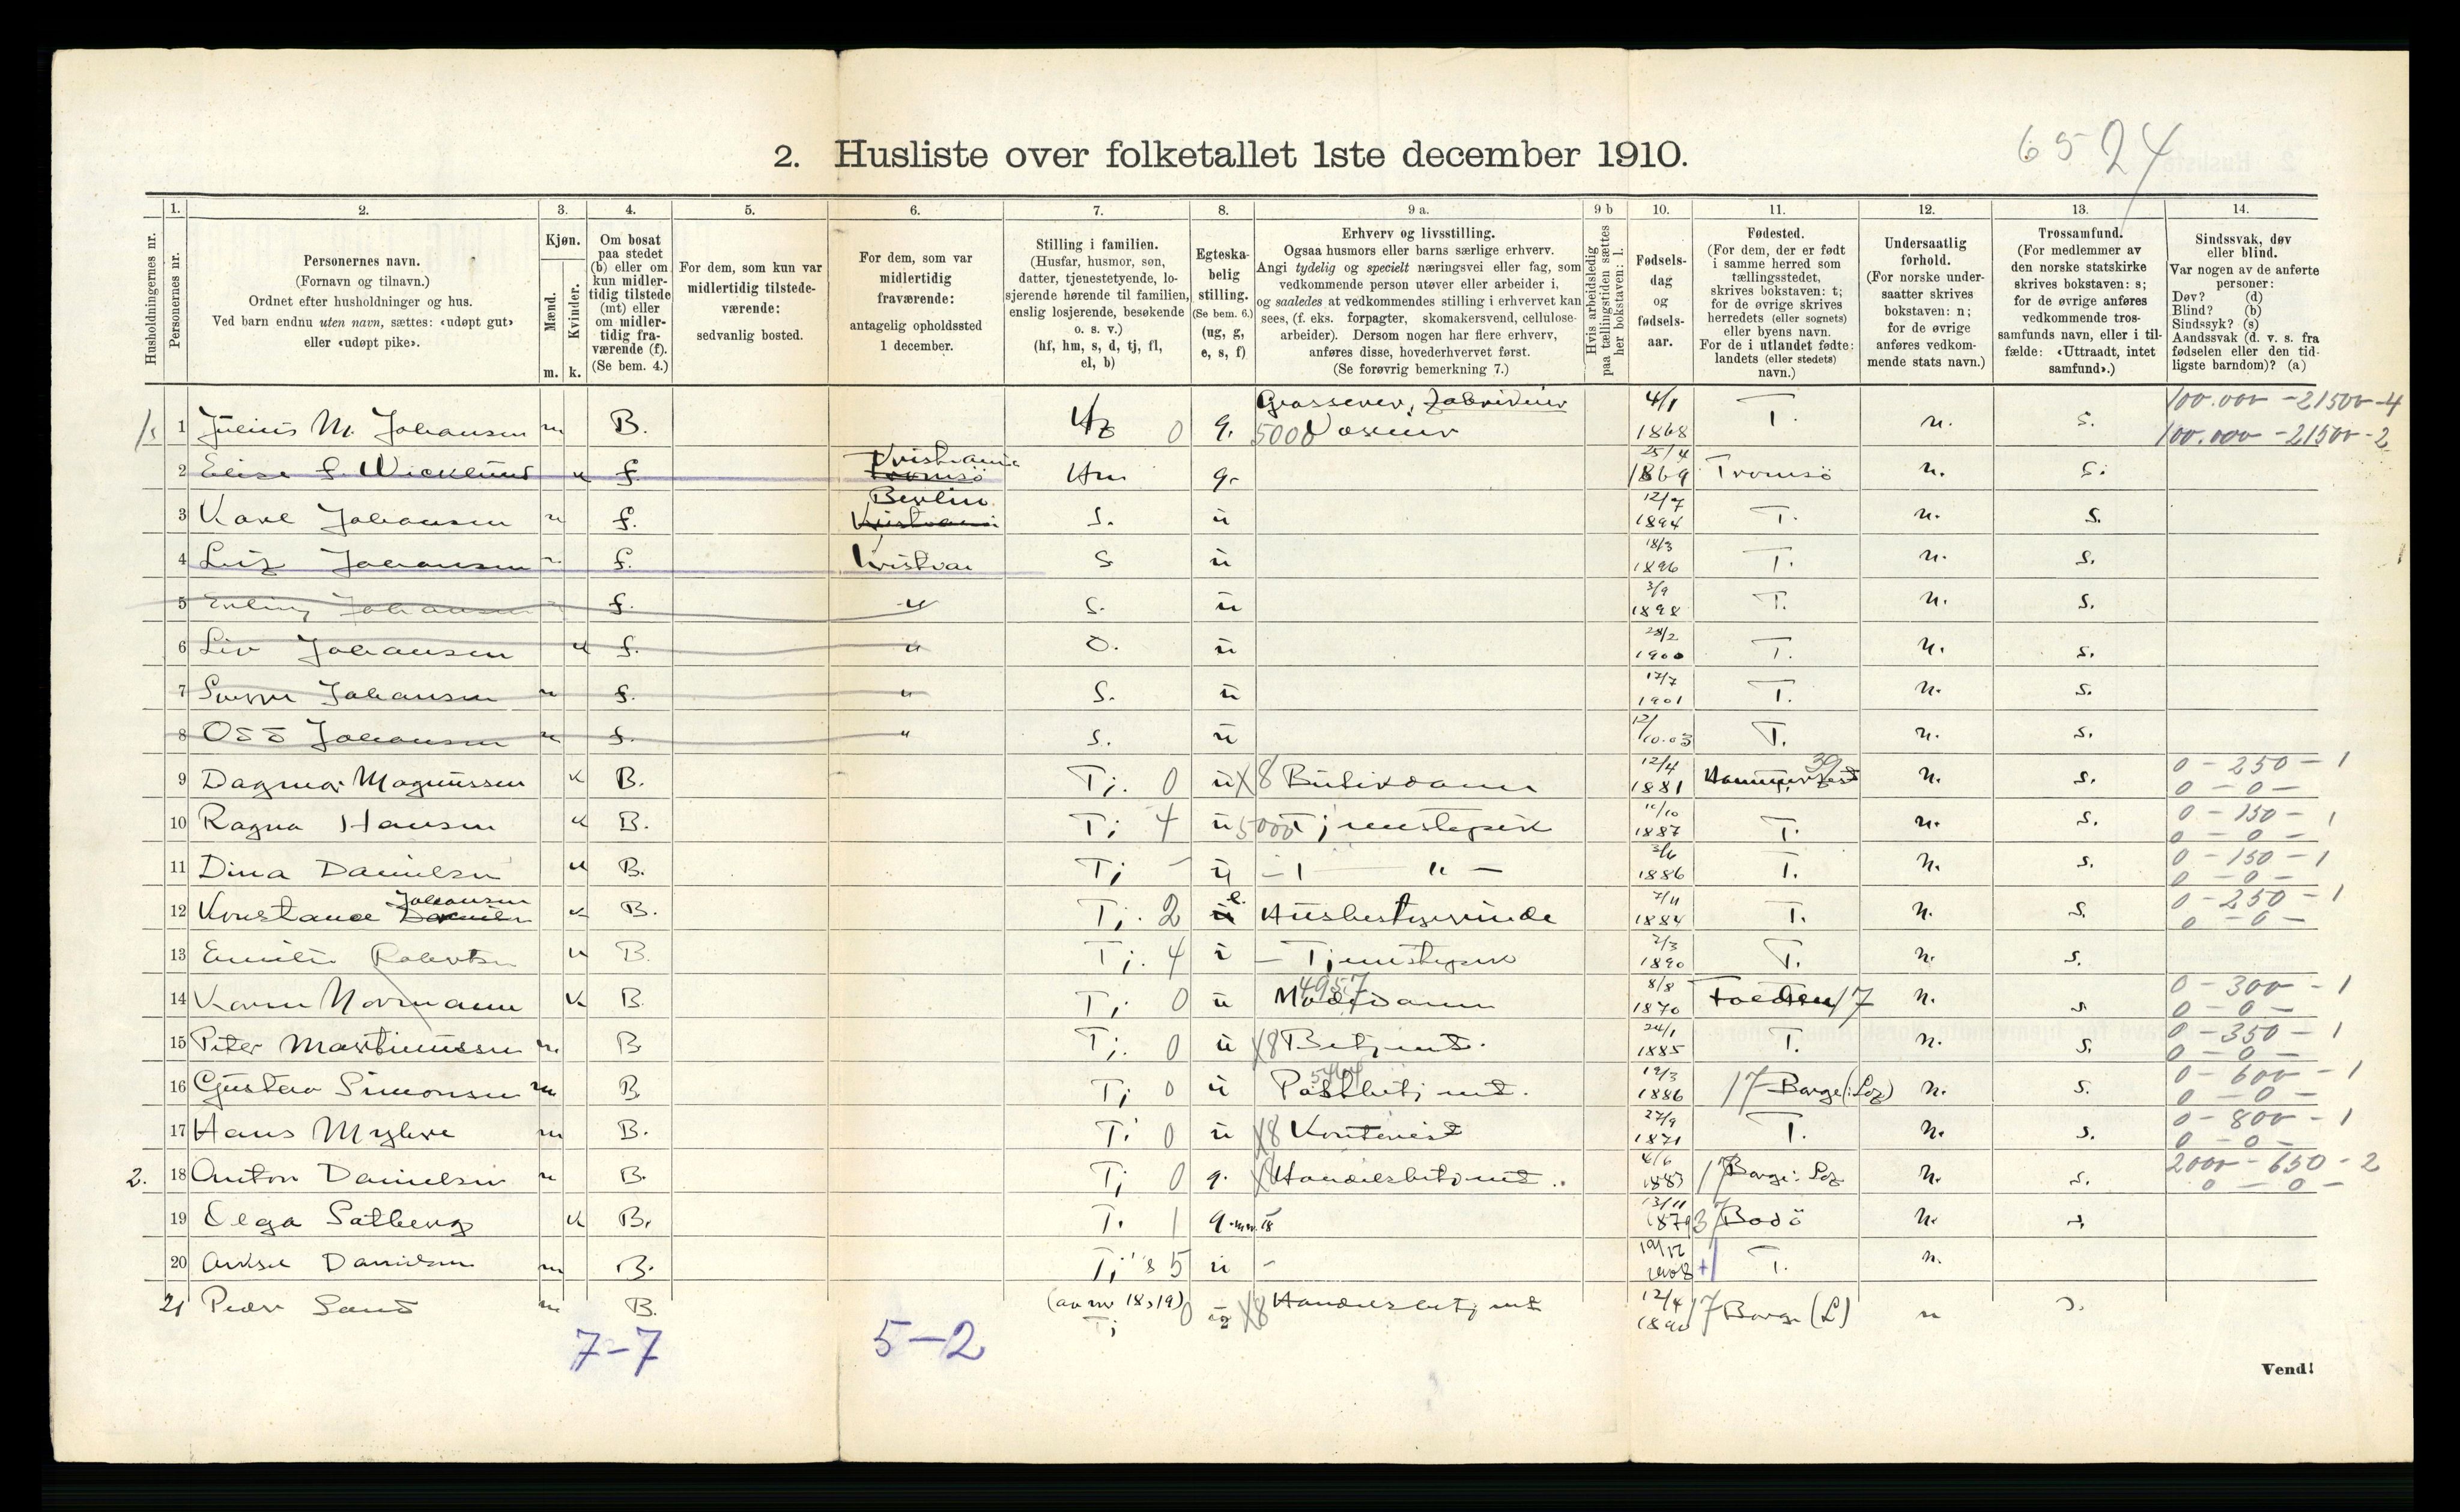 6524
2. Husliste over folketallet 1ste december 1910.
Husholdningernes nr.
1.
Personernes nr.
2.
Personernes navn.
(Fornavn og tilnavn.)
Ordnet efter husholdninger og hus.
Ved barn endnu uten navn, sættes: «udøpt gut»
eller «udøpt pike».
3.
Kjøn.
Mænd.
Kvinder.
m. k.
4.
Om bosat
paa stedet
(b) eller om
kun midler-
tidig tilstede
(mt) eller
om midler-
tidig fra-
værende (f).
(Se bem. 4.)
5.
For dem, som kun var
midlertidig tilstede-
værende:
sedvanlig bosted.
6.
For dem, som var
midlertidig
fraværende:
antagelig opholdssted
1 december.
7.
Stilling i familien.
(Husfar, husmor, søn,
datter, tjenestetyende, lo-
sjerende hørende til familien,
enslig losjerende, besøkende
o. s. v.)
(hf, hm, s, d, tj, fl,
el, b)
8.
Egteska-
belig
stilling.
(Se bem. 6.)
(ug, g,
e, s, f)
9 a.
Erhverv og livsstilling.
Ogsaa husmors eller barns særlige erhverv.
Angi tydelig og specielt næringsvei eller fag, som
vedkommende person utøver eller arbeider i,
og saaledes at vedkommendes stilling i erhvervet kan
sees, (f. eks. forpagter, skomakersvend, cellulose-
arbeider). Dersom nogen har flere erhverv,
anføres disse, hovederhvervet først.
(Se forøvrig bemerkning 7.)
9 b
Hvis arbeidsledig
paa tællingstiden sættes
her bokstaven: l.
10.
Fødsels-
dag
og
fødsels-
aar.
11.
Fødested.
(For dem, der er født
i samme herred som
tællingsstedet,
skrives bokstaven: t;
for de øvrige skrives
herredets (eller sognets)
eller byens navn.
For de i utlandet fødte:
landets (eller stedets)
navn.)
12.
Undersaatlig
forhold.
(For norske under-
saatter skrives
bokstaven: n;
for de øvrige
anføres vedkom-
mende stats navn.)
13.
Trossamfund.
(For medlemmer av
den norske statskirke
skrives bokstaven: s;
for de øvrige anføres
vedkommende tros-
samfunds navn, eller i til-
fælde: «Uttraadt, intet
samfund».)
14.
Sindssvak, døv
eller blind.
Var nogen av de anførte
personer:
Døv? (d)
Blind? (b)
Sindssyk? (s)
Aandssvak (d. v. s. fra
fødselen eller den tid-
ligste barndom)? (a)
1 Julius M. Johansen m B. 0 g. Grosserer, 5000 4/1 1868 T. n. s. 100.000 - 21500 - 4
100.000 - 21500 - 2
2 Elise S. Wicklund k f. Kristiania Tromsö Hm g. 25/4 1869 Tromsö n. s.
3 Karl Johansen m f. Berlin Kristiania S. u 12/7 1894 T. n. s.
4 Johansen m f. S u 18/3 1896 T. n. s.
5 Erling Johansen m f. " S. u 3/9 1898 T. n. s.
6 Liv Johansen k f. " D. u 28/2 1900 T. n. s.
7 Johansen m f. " S. u 17/7 1901 T. n. s.
8 Johansen m f. " S. u 12/10.03 T. n. s.
9 Dagmar Magnussen k B. Tj. 0 u X8 Butikdame 12/4 1881 Hammerfest 39 n. s. 0 - 250 - 1
0 - 0 -
10 Ragna Hansen k B. Tj 4 u 5000 Tjenestepike 10/10 1887 T. n. s. 0 - 150 - 1
0 - 0 -
11 Dina Danielsen k B. Tj - u - " - 3/6 1886 T. n. s. 0 - 150 - 1
0 - 0 -
12 Konstance Johansen k B. Tj. 2 e. Husbestyrerinde 7/11 1884 T. n. s. 0 - 250 - 1
0 - 0 -
13 Emilie Robertsen k B. Tj. 4 u - Tjenestepike 2/3 1890 T. n. s.
14 Karen Normann k B. Tj 0 u 4957 Modedame 8/8 1870 17 n. s 0 - 300 - 1
0 - 0 -
15 Peter Martinussen m. B. Tj. 0 u X8 Betjent. 24/1 1885 T. n. s. 0 - 350 - 1
0 - 0 -
16 Gustav Simonsen m B. Tj 0 u 5464 Postbetjent. 19/3 1886 17 Borge (: Lof) n. s. 0 - 600 - 1
0 - 0 -
17 Hans Myhre m B. Tj 0 u X8 Kontorist 27/9 1871 T. n. s. 0 - 800 - 1
0 - 0 -
2. 18 Anton Danielsen m B. Tj 0 g. X8 Handelsbetjent. 4/6 1883 17 Borge: Lof n. s. 2000 - 650 - 2
0 - 0 -
19 Solberg k B. T. 1 g. m. nr. 18 13/11 1879 37 Bodö n. s.
20 Danielsen m B. Tj's 5 u - 19/12 1908 +1 T. n.
21 Peder Sand m B. (av nr 18 & 19) Tj 0 ug X8 Handelsbetjent 12/4 1890 17 Borge (L) n s.
7-7
5-2
Vend!